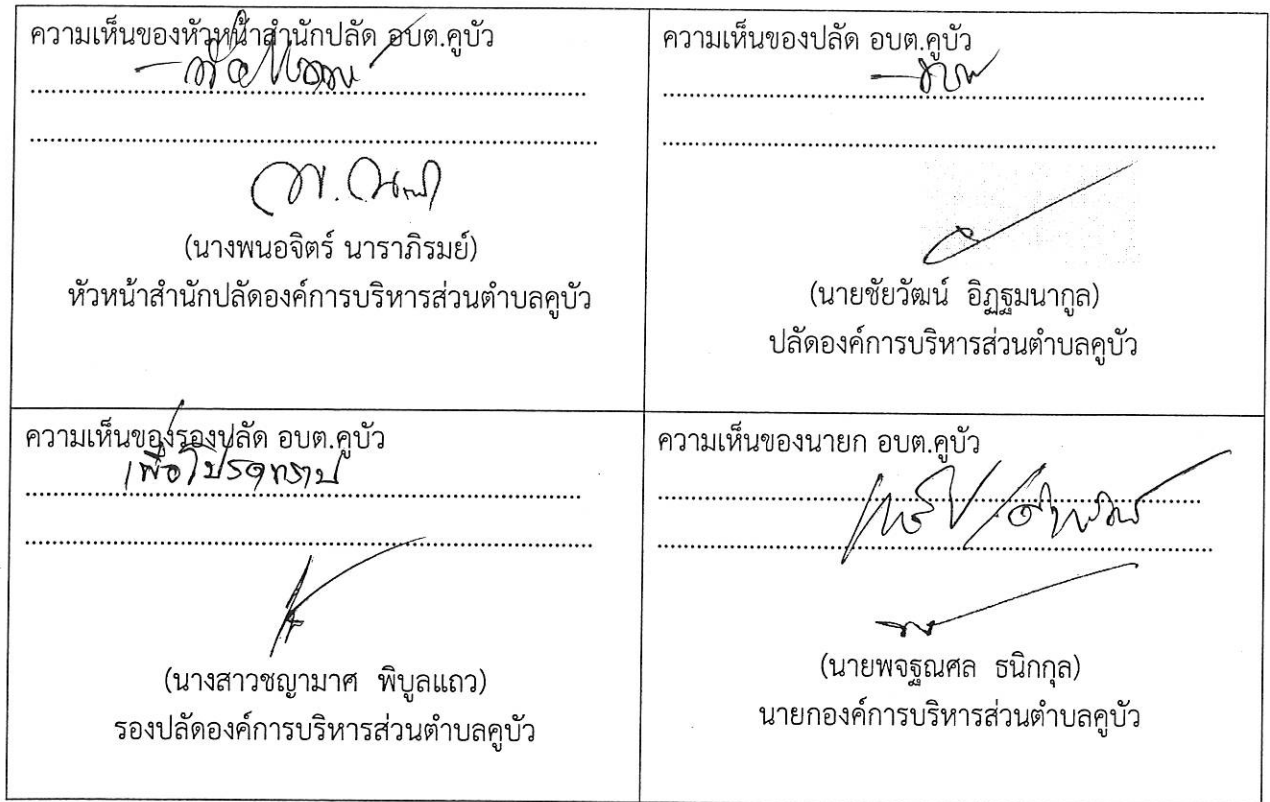 ความเห็นของหัวหน้าสำนักปลัด อบต.คูบัว
(นางพนอจิตร์ นาราภิรมย์)
หัวหน้าสำนักปลัดองค์การบริหารส่วนตำบลคูบัว
ความเห็นของปลัด อบต.คูบัว
(นายชัยวัฒน์ อิฏฐมนากูล)
ปลัดองค์การบริหารส่วนตำบลคูบัว
ความเห็นของรองปลัด อบต.คูบัว
เพื่อโปรดทราบ
(นางสาวชญามาศ พิบูลแถว)
รองปลัดองค์การบริหารส่วนตำบลคูบัว
ความเห็นของนายก อบต.คูบัว
(นายพจฐณศล ธนิกกุล)
นายกองค์การบริหารส่วนตำบลคูบัว